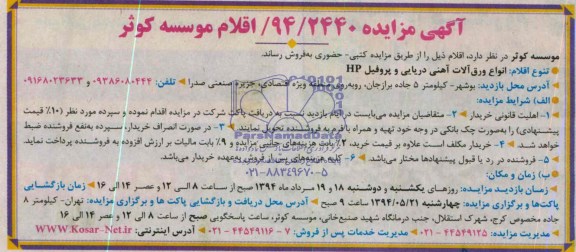 آگهی مزایده ۹۴/۲۴۴۰/ اقلام موسسه کوثر
موسسه کوثر در نظر دارد، اقلام ذیل را از طریق مزایده کتبی- حضوری به‌فروش رساند.
تنوع اقلام: انواع ورق‌آلات آهنی دریایی و پروفیل HP
آدرس محل بازدید: بوشهر- کیلومتر ۵ جاده برازجان، روبه‌روی منطقه ویژه اقتصادی، جزیره صنعتی صدرا تلفن: ۰۹۳۸۶۰۸۰۴۴۴ و ۰۹۱۶۸۰۲۳۶۳۳
الف) شرایط مزایده:
۱- اهلیت قانونی خریدار ۲- متقاضیان مزایده می‌بایست در ایام بازدید نسبت به دریافت پاکت شرکت در مزایده اقدام نموده و سپرده مورد نظر (۱۰٪ قیمت
پیشنهادی) را به‌صورت چک بانکی در وجه خود تهیه و همراه با فرم به فروشنده تحویل نمایند. ۳- در صورت انصراف خریدار، سپرده به‌نفع فروشنده ضبط
خواهد شد. ۴- خریدار مکلف است علاوه بر قیمت خرید، ۲٪ بابت هزینه‌های جانبی مزایده و ۹٪ بابت مالیات بر ارزش افزوده به فروشنده پرداخت نماید.
۵- فروشنده در رد یا قبول پیشنهادها مختار می‌باشد. ۶- کلیه هزینه‌های پس از فروش به‌عهده خریدار می‌باشد.
ParsNamadData
۰۲۱-۸۸۳۴۹۶۷۰-۵
ب) زمان و مکان:
زمان بازدید مزایده: روزهای یکشنبه و دوشنبه ۱۸ و ۱۹ مرداد ماه ۱۳۹۴ صبح از ساعت ۸ الی ۱۲ و عصر ۱۴ الی ۱۶ زمان بازگشایی
پاکت‌ها و برگزاری مزایده: چهارشنبه ۱۳۹۴/۰۵/۲۱ ساعت ۹ صبح آدرس محل دریافت و بازگشایی پاکت ها و برگزاری مزایده: تهران- کیلومتر ۸
جاده مخصوص کرج، شهرک استقلال، جنب درمانگاه شهید صنیع‌خانی، موسسه کوثر، ساعت پاسخگویی صبح از ساعت ۸ الی ۱۲ و عصر ۱۴ الی ۱۶
مدیریت مزایده: ۴۴۵۴۹۱۲۵ - ۰۲۱ مدیریت خدمات پس از فروش: ۷ - ۴۴۵۴۹۱۱۶ - ۰۲۱ آدرس اینترنتی: WWW.Kosar-Net.ir